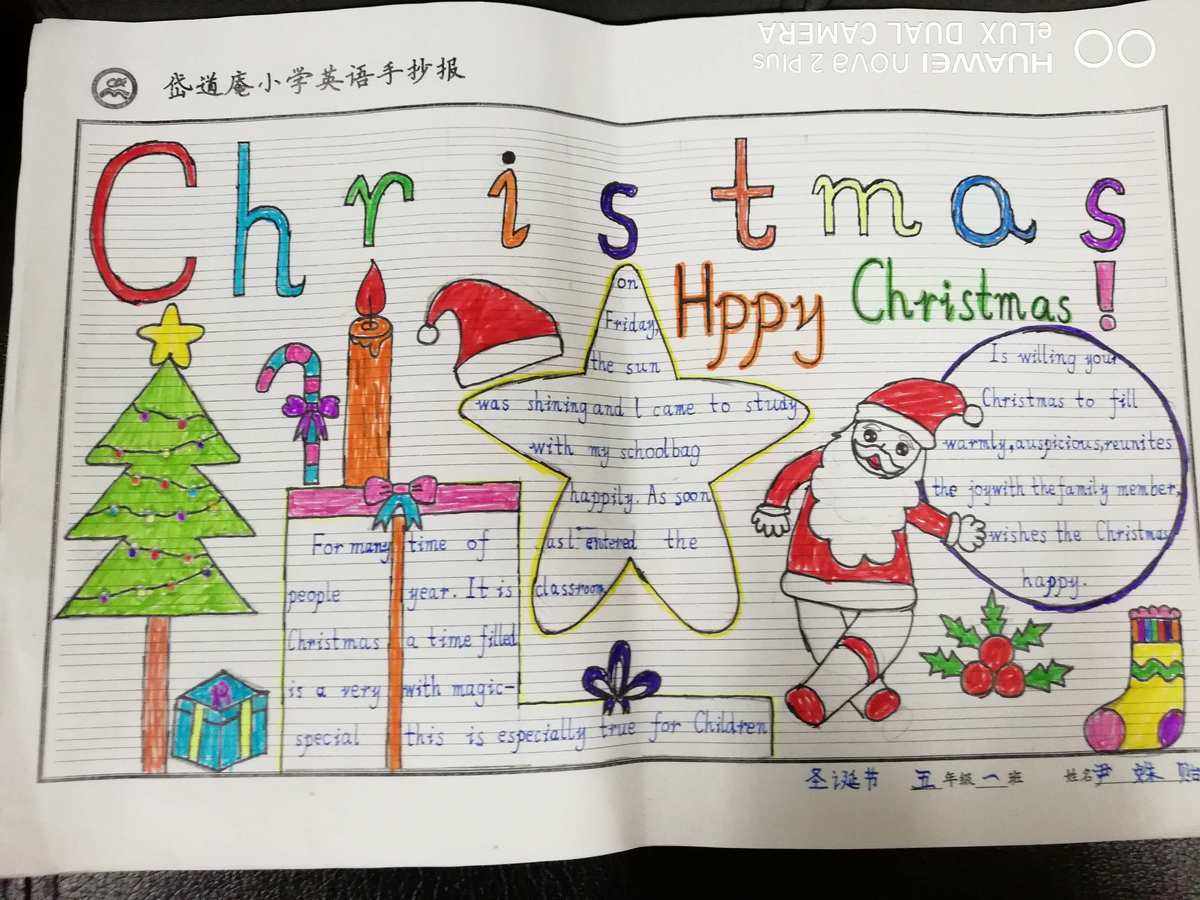 HUAWEI nova 2 Plus
eLUX DUAL CAMERA
岱道庵小学英语手抄报
Christmas
Hppy Christmas!
on
Friday,
the sun
was shining and l came to study
with my schoolbag
happily. As soon
as l entered the
classroom
Is willing your
Christmas to fill
warmly, auspicious, reunites
the joy with the family member,
wishes the Christmas
happy.
For many time of
people year. It is
Christmas a time filled
is a very with magic-
special this is especially true for Children
圣诞节 五年级一班 姓名尹